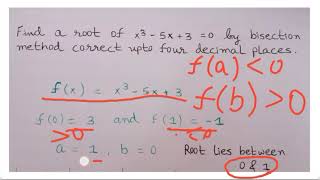 Find a root of x³ - 5x + 3 = 0 by bisection
method correct upto four decimal places.
f(a) < 0
f(x) = x³ - 5x + 3
f(b) > 0
f(0) = 3 and f(1) = -1
>0 <0
a = 1, b = 0 Root lies between
0 & 1